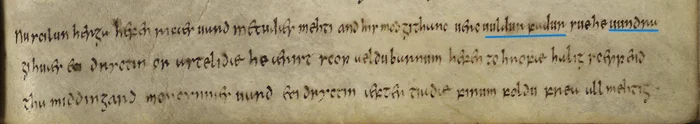 Nu scilun herga hefen ricæs uard metudæs mehti and his modgithanc uerc uuldur fadur suehe uundra
gihuæs eci dryctin or astelidæ he ærist scop aeldubarnum hefen to hrofæ halig sceppend
tha middingard moncynnæs uard eci dryctin æfter tiadæ firum foldu frea allmehtig